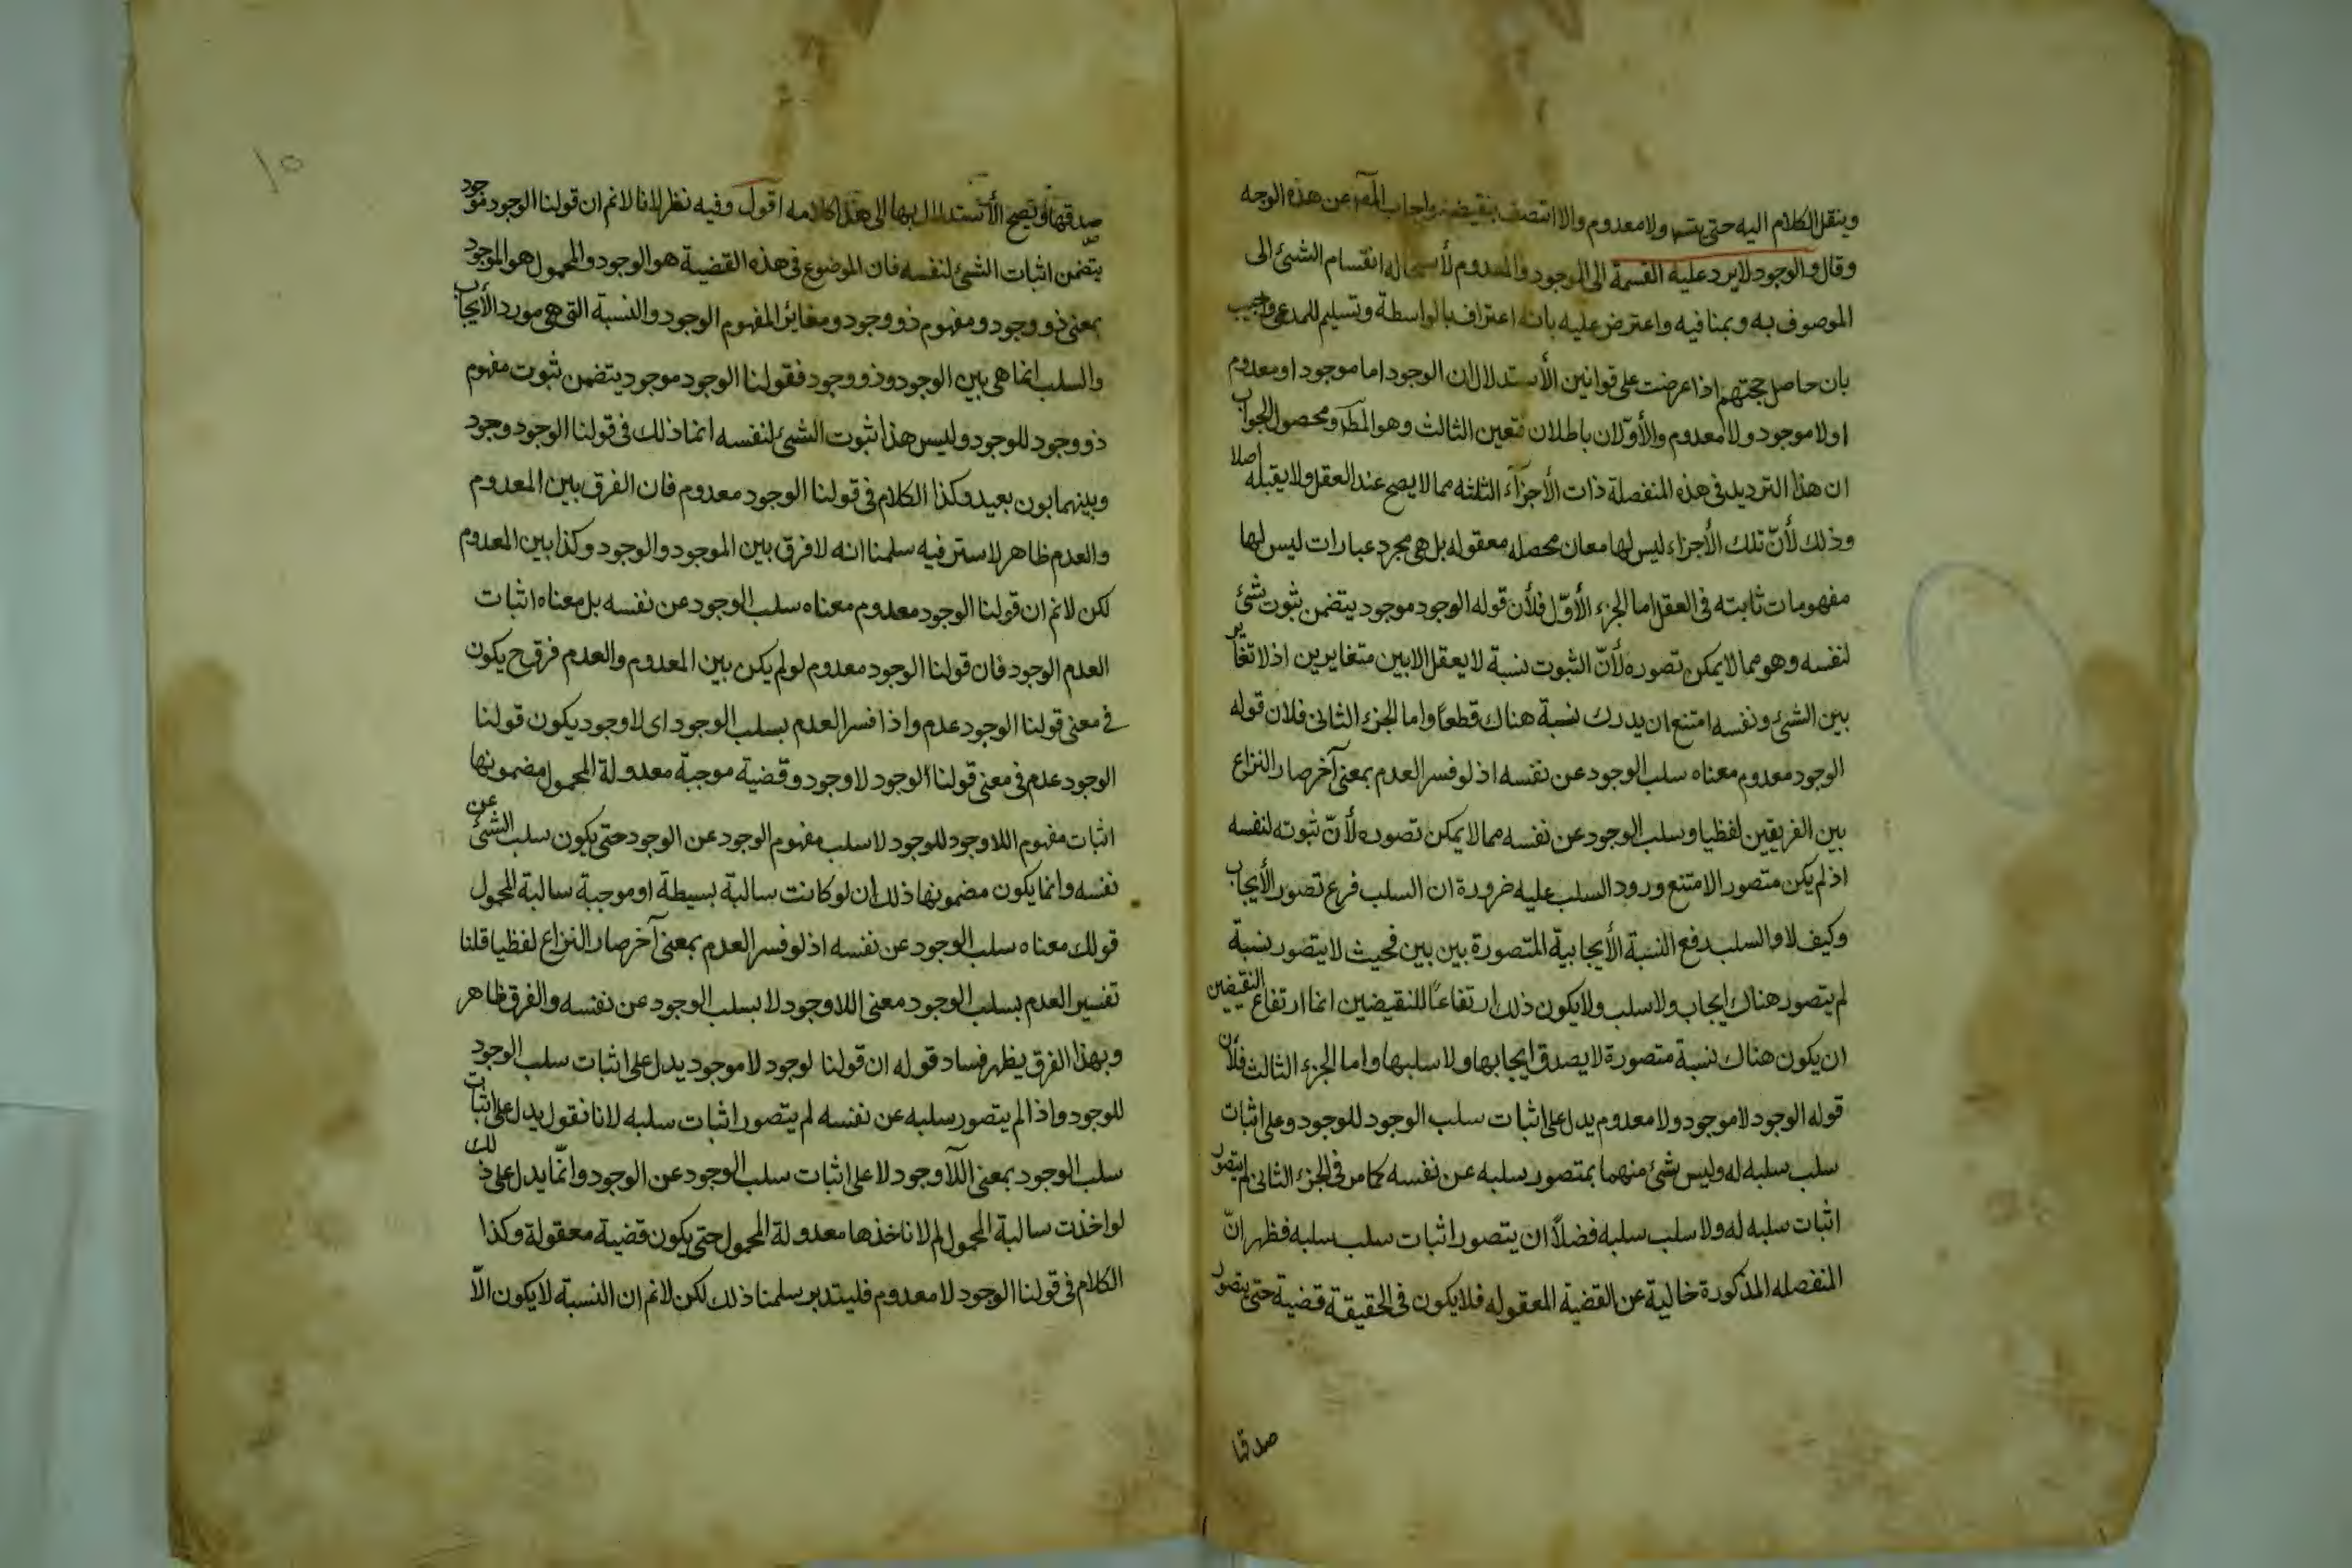 وينقل الكلام اليه حتى يتسلسل ولا معدوم والا اتصف بنقيضه واجاب المصـ عن هذه الوجه
وقال والوجود لا يرد عليه القسمة الى الموجود والمعدوم لأستحالة انقسام الشئ الى
الموصوف به وبمنافيه واعترض عليه بانه اعتراف بالواسطة وتسليم للمدعى واجيب
بان حاصل حجتهم اذا عرضت على قوانين الأستدلال ان الوجود اما موجود او معدوم
او لا موجود ولا معدوم والأوّلان باطلان فتعين الثالث وهو المطـ ومحصول الجواب
ان هذا الترديد فى هذه المنفصلة ذات الأجزآء الثلثه مما لا يصح عند العقل ولا يقبله اصلا
وذلك لأنّ تلك الأجزاء ليس لها معان محصله معقوله بل هى مجرد عبارات ليس لها
مفهومات ثابته فى العقل اما الجزء الأوّل فلأن قوله الوجود موجود يتضمن ثبوت شئ
لنفسه وهو مما لا يمكن تصوره لأنّ الثبوت نسبة لا يعقل الا بين متغايرين اذ لا تغاير
بين الشئ ونفسه امتنع ان يدرك نسبة هناك قطعاً واما الجزء الثانى فلان قوله
الوجود معدوم معناه سلب الوجود عن نفسه اذ لو فسر العدم بمعنى آخر صار النزاع
بين الفريقين لفظيا وسلب الوجود عن نفسه مما لا يمكن تصوره لأنّ ثبوته لنفسه
اذ لم يكن متصورا لامتنع ورود السلب عليه ضرورة ان السلب فرع تصور الأيجاب
وكيف لا والسلب رفع النسبة الأيجابية المتصورة بين بين فحيث لا يتصور نسبة
لم يتصور هناك ايجاب ولا سلب ولا يكون ذلك ارتفاعاً للنقيضين انما ارتفاع النقيضين
ان يكون هناك نسبة متصورة لا يصدق ايجابها ولا سلبها واما الجزء الثالث فلأن
قوله الوجود لا موجود ولا معدوم يدل على اثبات سلب الوجود للوجود وعلى اثبات
سلب سلبه له وليس شئ منهما بمتصور سلبه عن نفسه كما مر فى الجزء الثانى لم يتصور
اثبات سلبه له ولا سلب سلبه فضلاً ان يتصور اثبات سلب سلبه فظهر انّ
المنفصله المذكورة خالية عن القضية المعقوله فلا يكون فى الحقيقة قضية حتى يتصور
صدقها
١٥
صدقها ويصح الأستدلال بها الى هذا كلامه اقول وفيه نظر لانا لانم ان قولنا الوجود موجود
يتضمن اثبات الشئ لنفسه فان الموضوع فى هذه القضية هو الوجود والمحمول هو الموجود
بمعنى ذو وجود ومفهوم ذو وجود ومغاير المفهوم الوجود والنسبة التى هى مورد الأيجاب
والسلب انما هى بين الوجود وذو وجود فقولنا الوجود موجود يتضمن ثبوت مفهوم
ذو وجود للوجود وليس هذا ثبوت الشئ لنفسه انما ذلك فى قولنا الوجود وجود
وبينهما بون بعيد وكذا الكلام فى قولنا الوجود معدوم فان الفرق بين المعدوم
والعدم ظاهر لا ستر فيه سلمنا انه لا فرق بين الموجود والوجود وكذا بين المعدوم
لكن لانم ان قولنا الوجود معدوم معناه سلب الوجود عن نفسه بل معناه اثبات
العدم الوجود فان قولنا الوجود معدوم لو لم يكن بين المعدوم والعدم فرق ح يكون
فى معنى قولنا الوجود عدم واذا فسر العدم بسلب الوجود اى لا وجود يكون قولنا
الوجود عدم فى معنى قولنا الوجود لا وجود وقضية موجبة معدولة المحمول مضمونها
اثبات مفهوم اللا وجود للوجود لا سلب مفهوم الوجود عن الوجود حتى يكون سلب الشئ عن
نفسه وانما يكون مضمونها ذلك ان لو كانت سالبة بسيطة او موجبة سالبة المحمول
قولك معناه سلب الوجود عن نفسه اذ لو فسر العدم بمعنى آخر صار النزاع لفظيا قلنا
تفسير العدم بسلب الوجود معنى اللا وجود لا بسلب الوجود عن نفسه والفرق ظاهر
وبهذا الفرق يظهر فساد قوله ان قولنا لوجود لا موجود يدل على اثبات سلب الوجود
للوجود واذا لم يتصور سلبه عن نفسه لم يتصور اثبات سلبه لانا نقول يدل على اثبات
سلب الوجود بمعنى اللآ وجود لا على اثبات سلب الوجود عن الوجود وانّما يدل على ذلك
لو اخذت سالبة المحمول لم لا ناخذها معدولة المحمول حتى يكون قضية معقولة وكذا
الكلام فى قولنا الوجود لا معدوم فليتدبر سلمنا ذلك لكن لانم ان النسبة لا يكون الّا